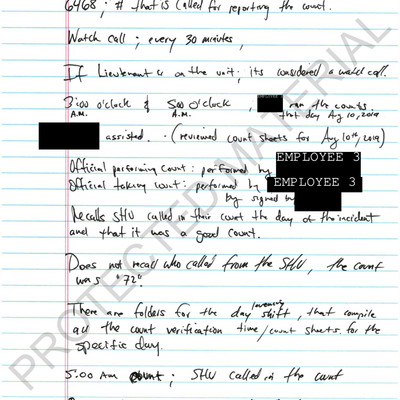 6468; # that is called for reporting the count.
Watch call; every 30 minutes,
If Lieutenant is on the unit; its considered a watch call.
3:00 o'clock & 5:00 o'clock, ran the counts
A.M. A.M. that day Aug 10, 2019
assisted. - (reviewed count sheets for Aug 10th, 2019)
Official performing count: performed by EMPLOYEE 3
Official taking count: performed by EMPLOYEE 3
by signed by
Recalls SHU called in their count the day of the incident
and that it was a good count.
Does not recall who called from the SHU, the count
was "72".
There are folders for the day/evening shift, that compile
all the count verification time/count sheets for the
specific day.
5:00 AM count; SHU called in the count
PROTECTED MATERIAL